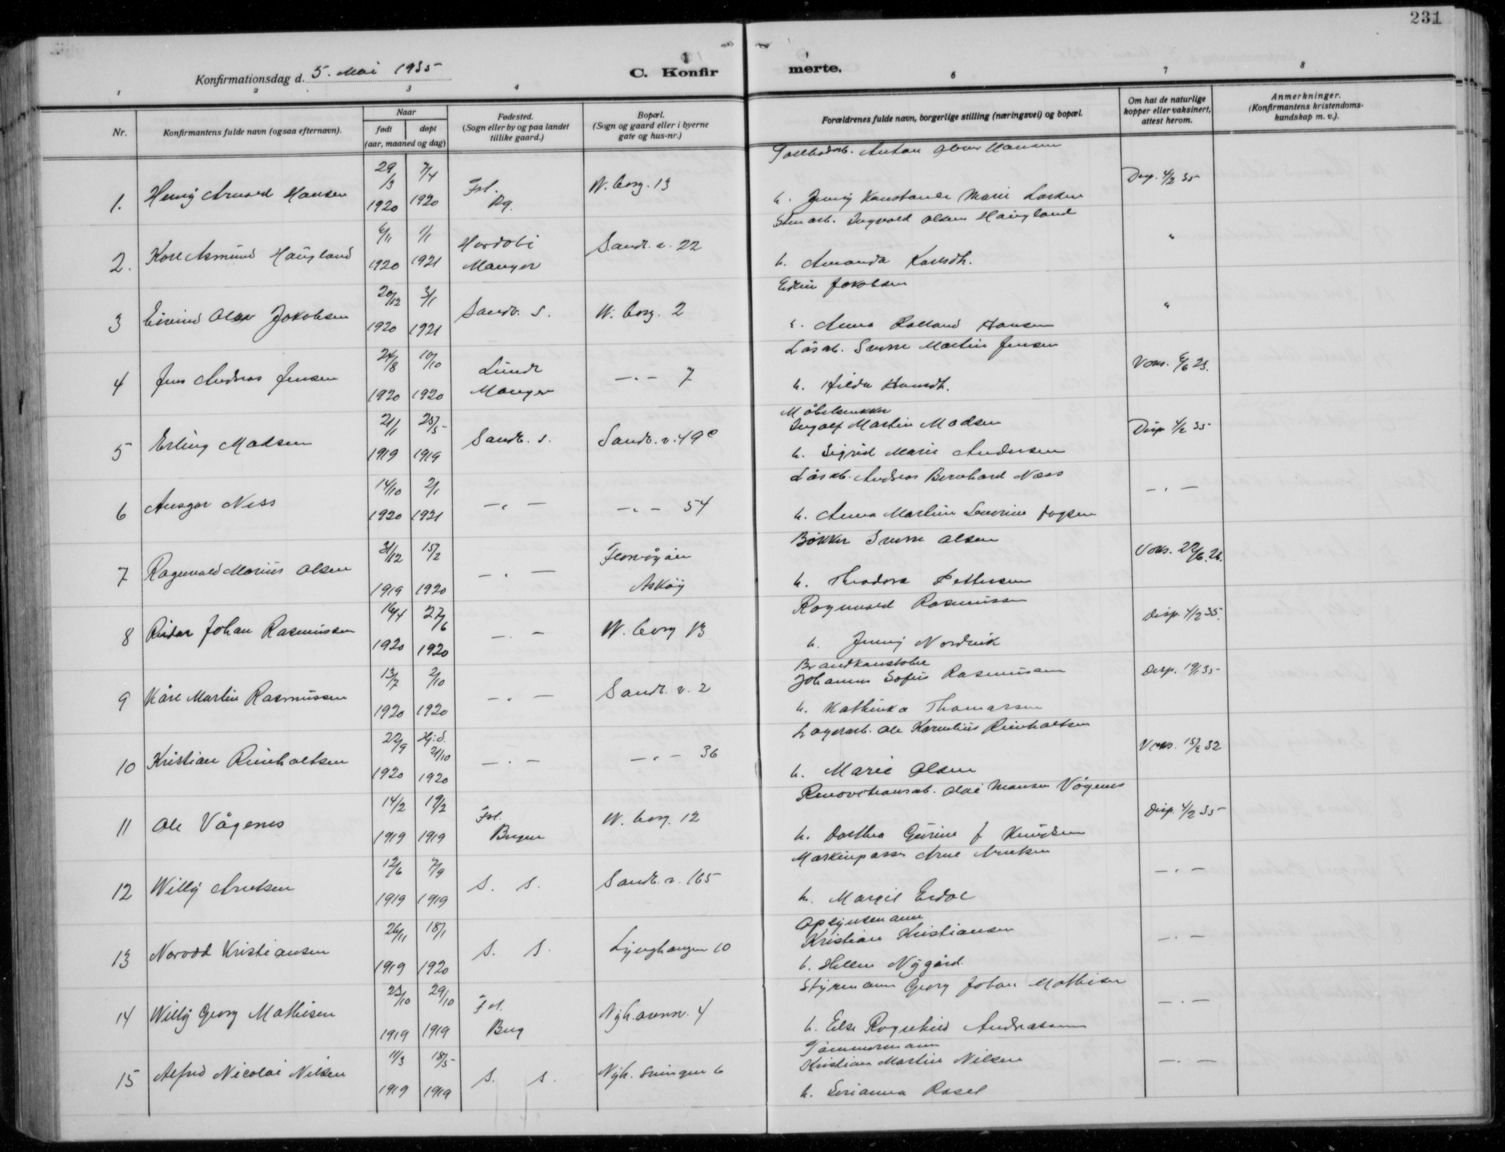 231
Konfirmationsdag d. 5. Mai 1935
C. Konfirmerte.
1 2 3 4 6 7 8
Nr.
Konfirmantens fulde navn (ogsaa efternavn).
Naar
født døpt
(aar, maaned og dag)
Fødested.
(Sogn eller by og paa landet tillike gaard.)
Bopæl.
(Sogn og gaard eller i byerne gate og hus-nr.)
Forældrenes fulde navn, borgerlige stilling (næringsvei) og bopæl.
Om hat de naturlige kopper eller vaksinert, attest herom.
Anmerkninger.
(Konfirmantens kristendomskundskap m. v.).
1. Henry Arnold Hansen 29/3 1920 7/4 1920 Fsl. Bg. W. borg. 13 Anton Hansen Disp. 4/2 35
h. Jenny Konstanse Marie Larsen
2. Kåre Asmund Haugland 6/11 1920 1/1 1921 Manger Sandv. v. 22 Ingvald Olsen Haugland "
h. Amanda Karlsdt.
3 Eivind Olav Jakobsen 20/12 1920 3/1 1921 Sandv. S. W. borg. 2 Jakobsen "
Anna Hansen
4 Jens Andreas Jensen 24/8 1920 10/10 1920 Manger — " — 7 Løsarb. Sverre Martin Jensen Vaks. 6/6 23.
h. Hilda
5 Erling Madsen 21/1 1919 25/5 1919 Sandv. S. Sandv. v. 49c Møbelsnekker Ingolf Martin Madsen Disp 4/2 35
h. Sigrid Marie Andersen
6 Ansgar Ness 14/10 1920 2/1 1921 — " — — " — 54 Løsarb. Andreas Bernhard Næss — " —
h. Anna Martine Severine
7 Ragnvald Marius Olsen 31/12 1919 15/2 1920 — " — Florvågøen Askøy Bøkker Sverre Olsen Vaks.
h. Theodora Pettersen
8 Reidar Johan Rasmussen 16/4 1920 27/6 1920 — " — W. borg 13 Ragnvald Rasmussen Disp. 4/2 35.
h. Jenny Nordvik
9 Kåre Martin Rasmussen 13/7 1920 2/10 1920 — " — Sandv. v. 2 Brandkonstabel Johannes Sofus Rasmussen Disp.
h. Kathinka Thomassen
10 Kristian Reinholtsen 22/9 1920 Hj.d. 21/10 1920 — " — — " — 36 Lagerarb. Ole Kornelius Reinholtsen Vaks. 15/2 32
h. Marie Olsen
11 Ole Vågenes 14/2 1919 19/2 1919 Fsl. Bergen W. borg. 12 Renovationsarb. Olai Monsen Vågenes Disp. 4/2 35
h. Dorthea Gurine f. Knudsen
12 Willy Arntsen 12/6 1919 7/9 1919 S. S. Sandv. v. 165 Maskinpasser Arne Arntsen — " —
h. Margit Erdal
13 Norvad Kristiansen 26/11 1919 18/1 1920 S. S. Lynghaugen 10 Opsynsmann Kristian Kristiansen — " —
h. Helene Nygård
14 Willy Georg Mathisen 23/10 1919 29/10 1919 Fsl. Berg Nyh. 4 Styrmann Georg Johan Mathisen — " —
h. Else Ragnhild Andreassen
15 Alfred Nicolai Nilsen 11/3 1919 18/5 1919 S. S. Nyh. svingen 6 Tømmermann Kristian Martin Nilsen — " —
h.